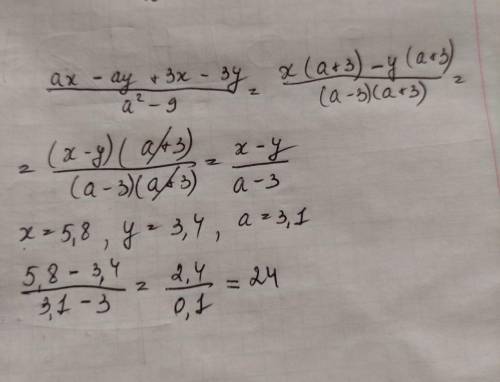 (ax - ay + 3x - 3y)/(a² - 9) = (x(a+3) - y(a+3))/((a-3)(a+3)) =
= ((x-y)(a+3))/((a-3)(a+3)) = (x-y)/(a-3)
x=5,8 , y=3,4 , a=3,1
(5,8 - 3,4)/(3,1 - 3) = 2,4/0,1 = 24